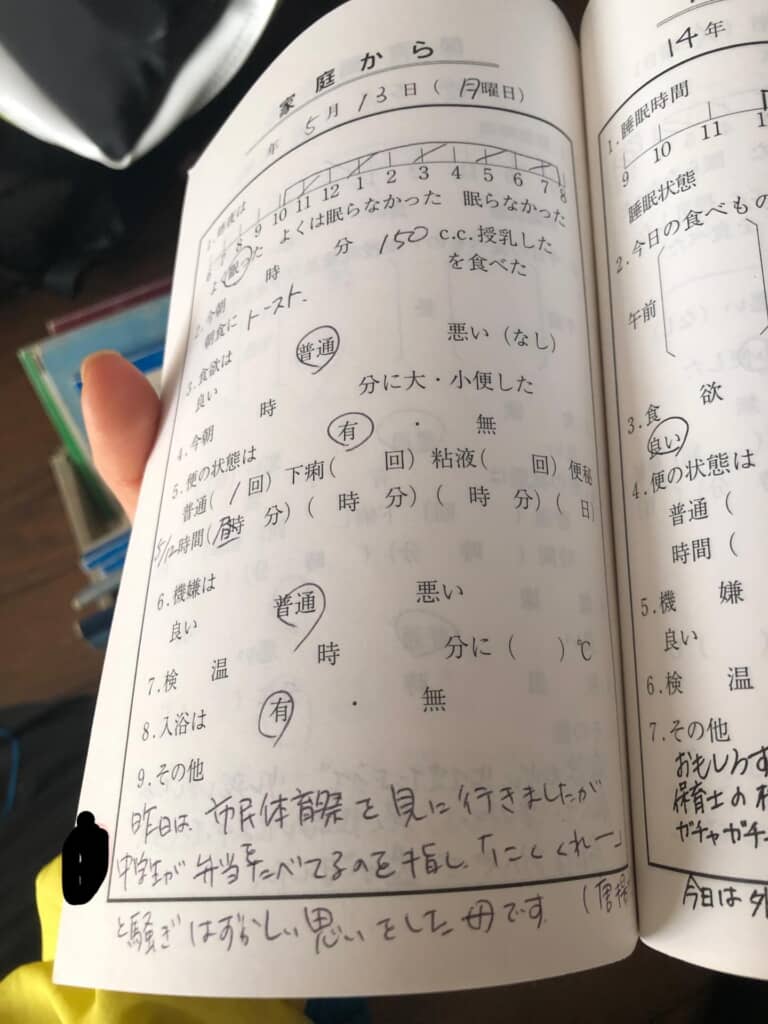 家庭から
年 5月 13日 ( 月曜日)
1. 昨夜は
6 7 8 9 10 11 12 1 2 3 4 5 6 7 8
よく眠った よくは眠らなかった 眠らなかった
2. 今朝 時 分 150 c.c.授乳した
朝食に トースト. を食べた
3. 食欲は
良い 普通 悪い (なし)
4. 今朝 時 分に大・小便した
5. 便の状態は 有 ・ 無
普通( 1回) 下痢( 回) 粘液( 回) 便秘
5/12 時間(昼時 分) ( 時 分) ( 時 分) ( 日)
6. 機嫌は
良い 普通 悪い
7. 検 温 時 分に ( )℃
8. 入浴は 有 ・ 無
9. その他
昨日は、市民体育祭を見に行きましたが
中学生が 弁当たべてるのを指し、「にくくれー」
と騒ぎ はずかしい思いをした母です. (唐揚
14年
1. 睡眠時間
9 10 11
睡眠状態
2. 今日の食べもの
午前
3. 食 欲
良い
4. 便の状態は
普通 (
時間 (
5. 機 嫌
良い
6. 検 温
7. その他
おもしろ
保育士の
ガチャガチ
今日は 外